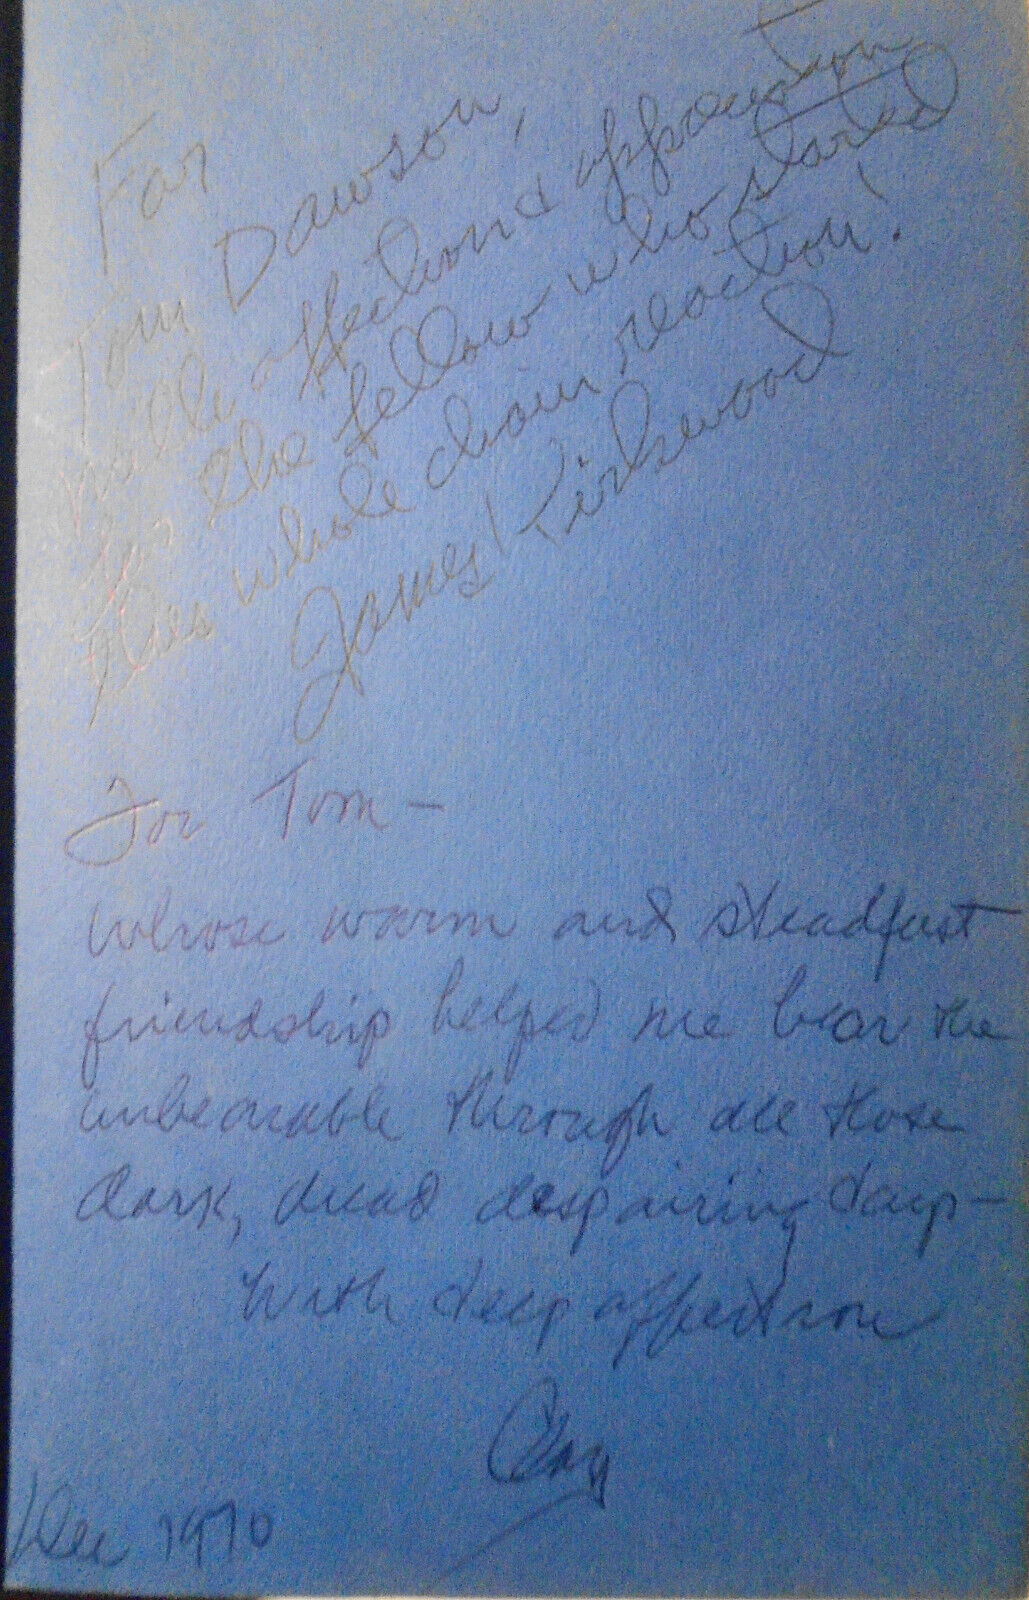 For
Tom Dawson,
with affection & appreciation
for the fellow who started
this whole chain reaction!
James Kirkwood
For Tom —
whose warm and steadfast
friendship helped me bear the
unbearable through all those
dark, dead despairing days —
With deep affection
Clay
Dec 1970